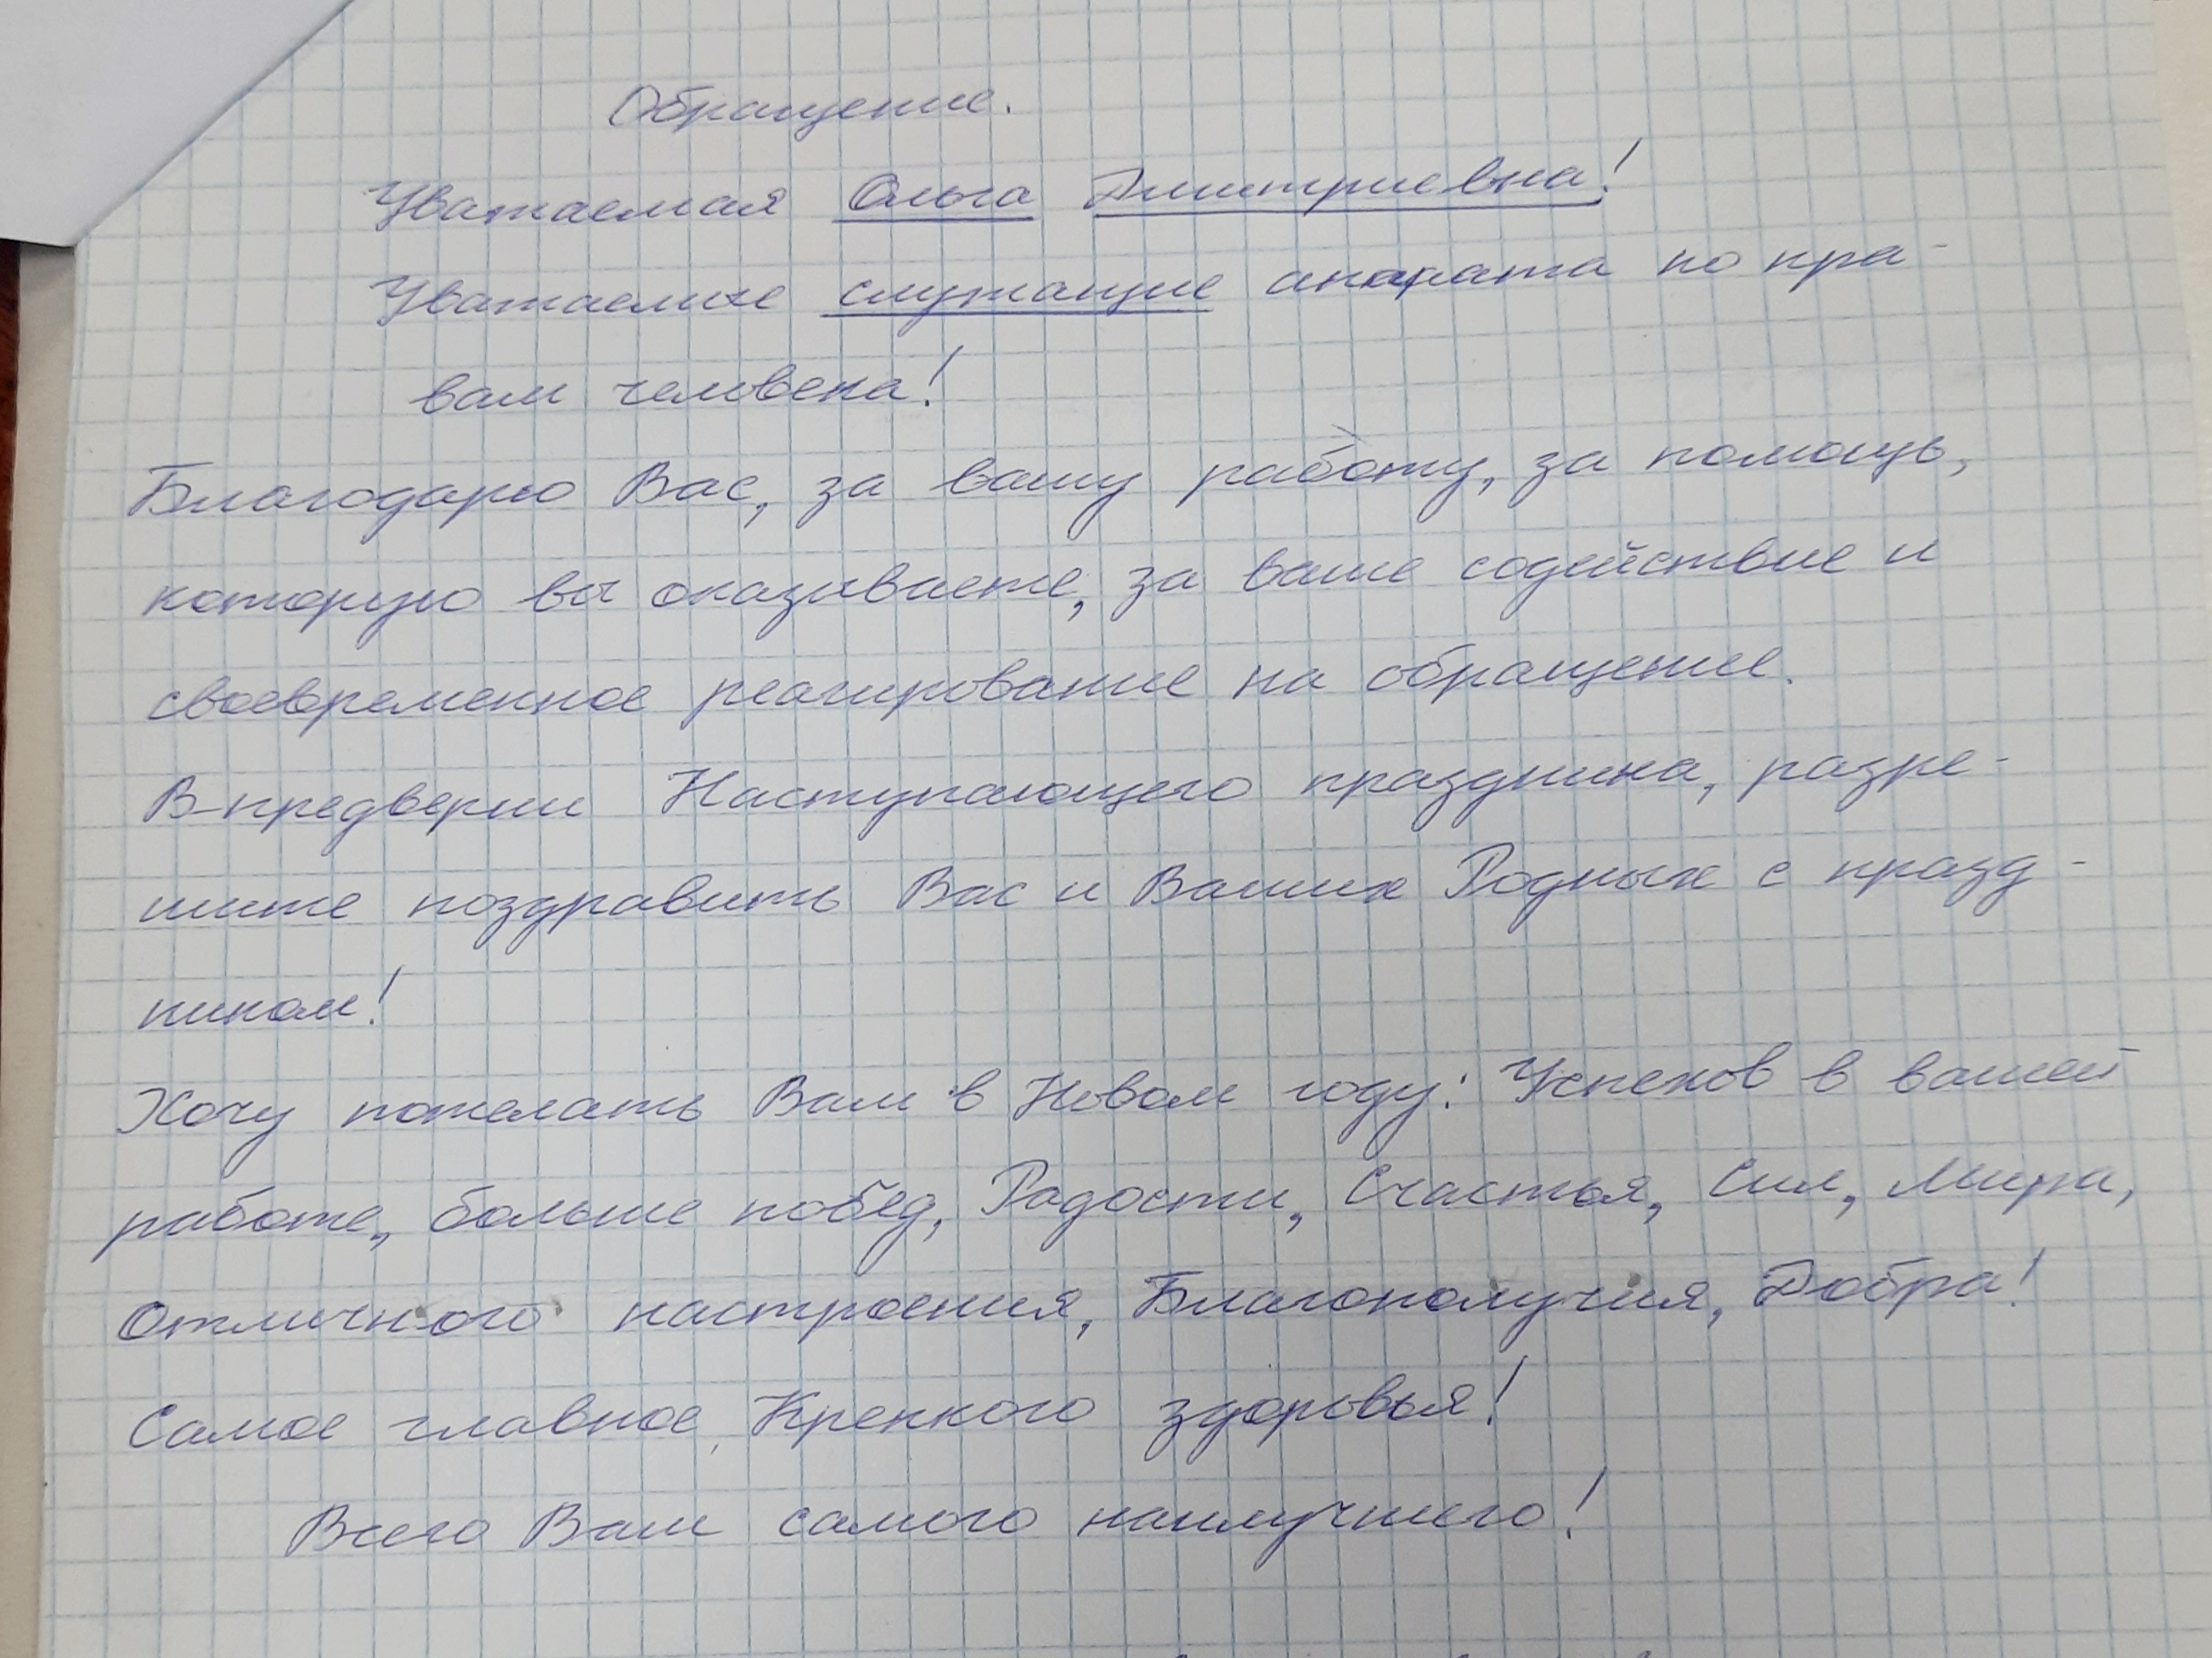 Обращение.
Уважаемая Ольга Дмитриевна!
Уважаемые служащие апарата по пра-
вам человека!
Благодарю Вас, за вашу работу, за помощь,
которую вы оказываете, за ваше содействие и
своевременное реагирование на обращение.
В предверии Наступающего праздника, разре-
шите поздравить Вас и Ваших Родных с празд-
ником!
Хочу пожелать Вам в Новом году: Успехов в вашей
работе, больше побед, Радости, Счастья, Сил, Мира,
Отличного настроения, Благополучия, Добра!
Самое главное, Крепкого здоровья!
Всего Вам самого наилучшего!